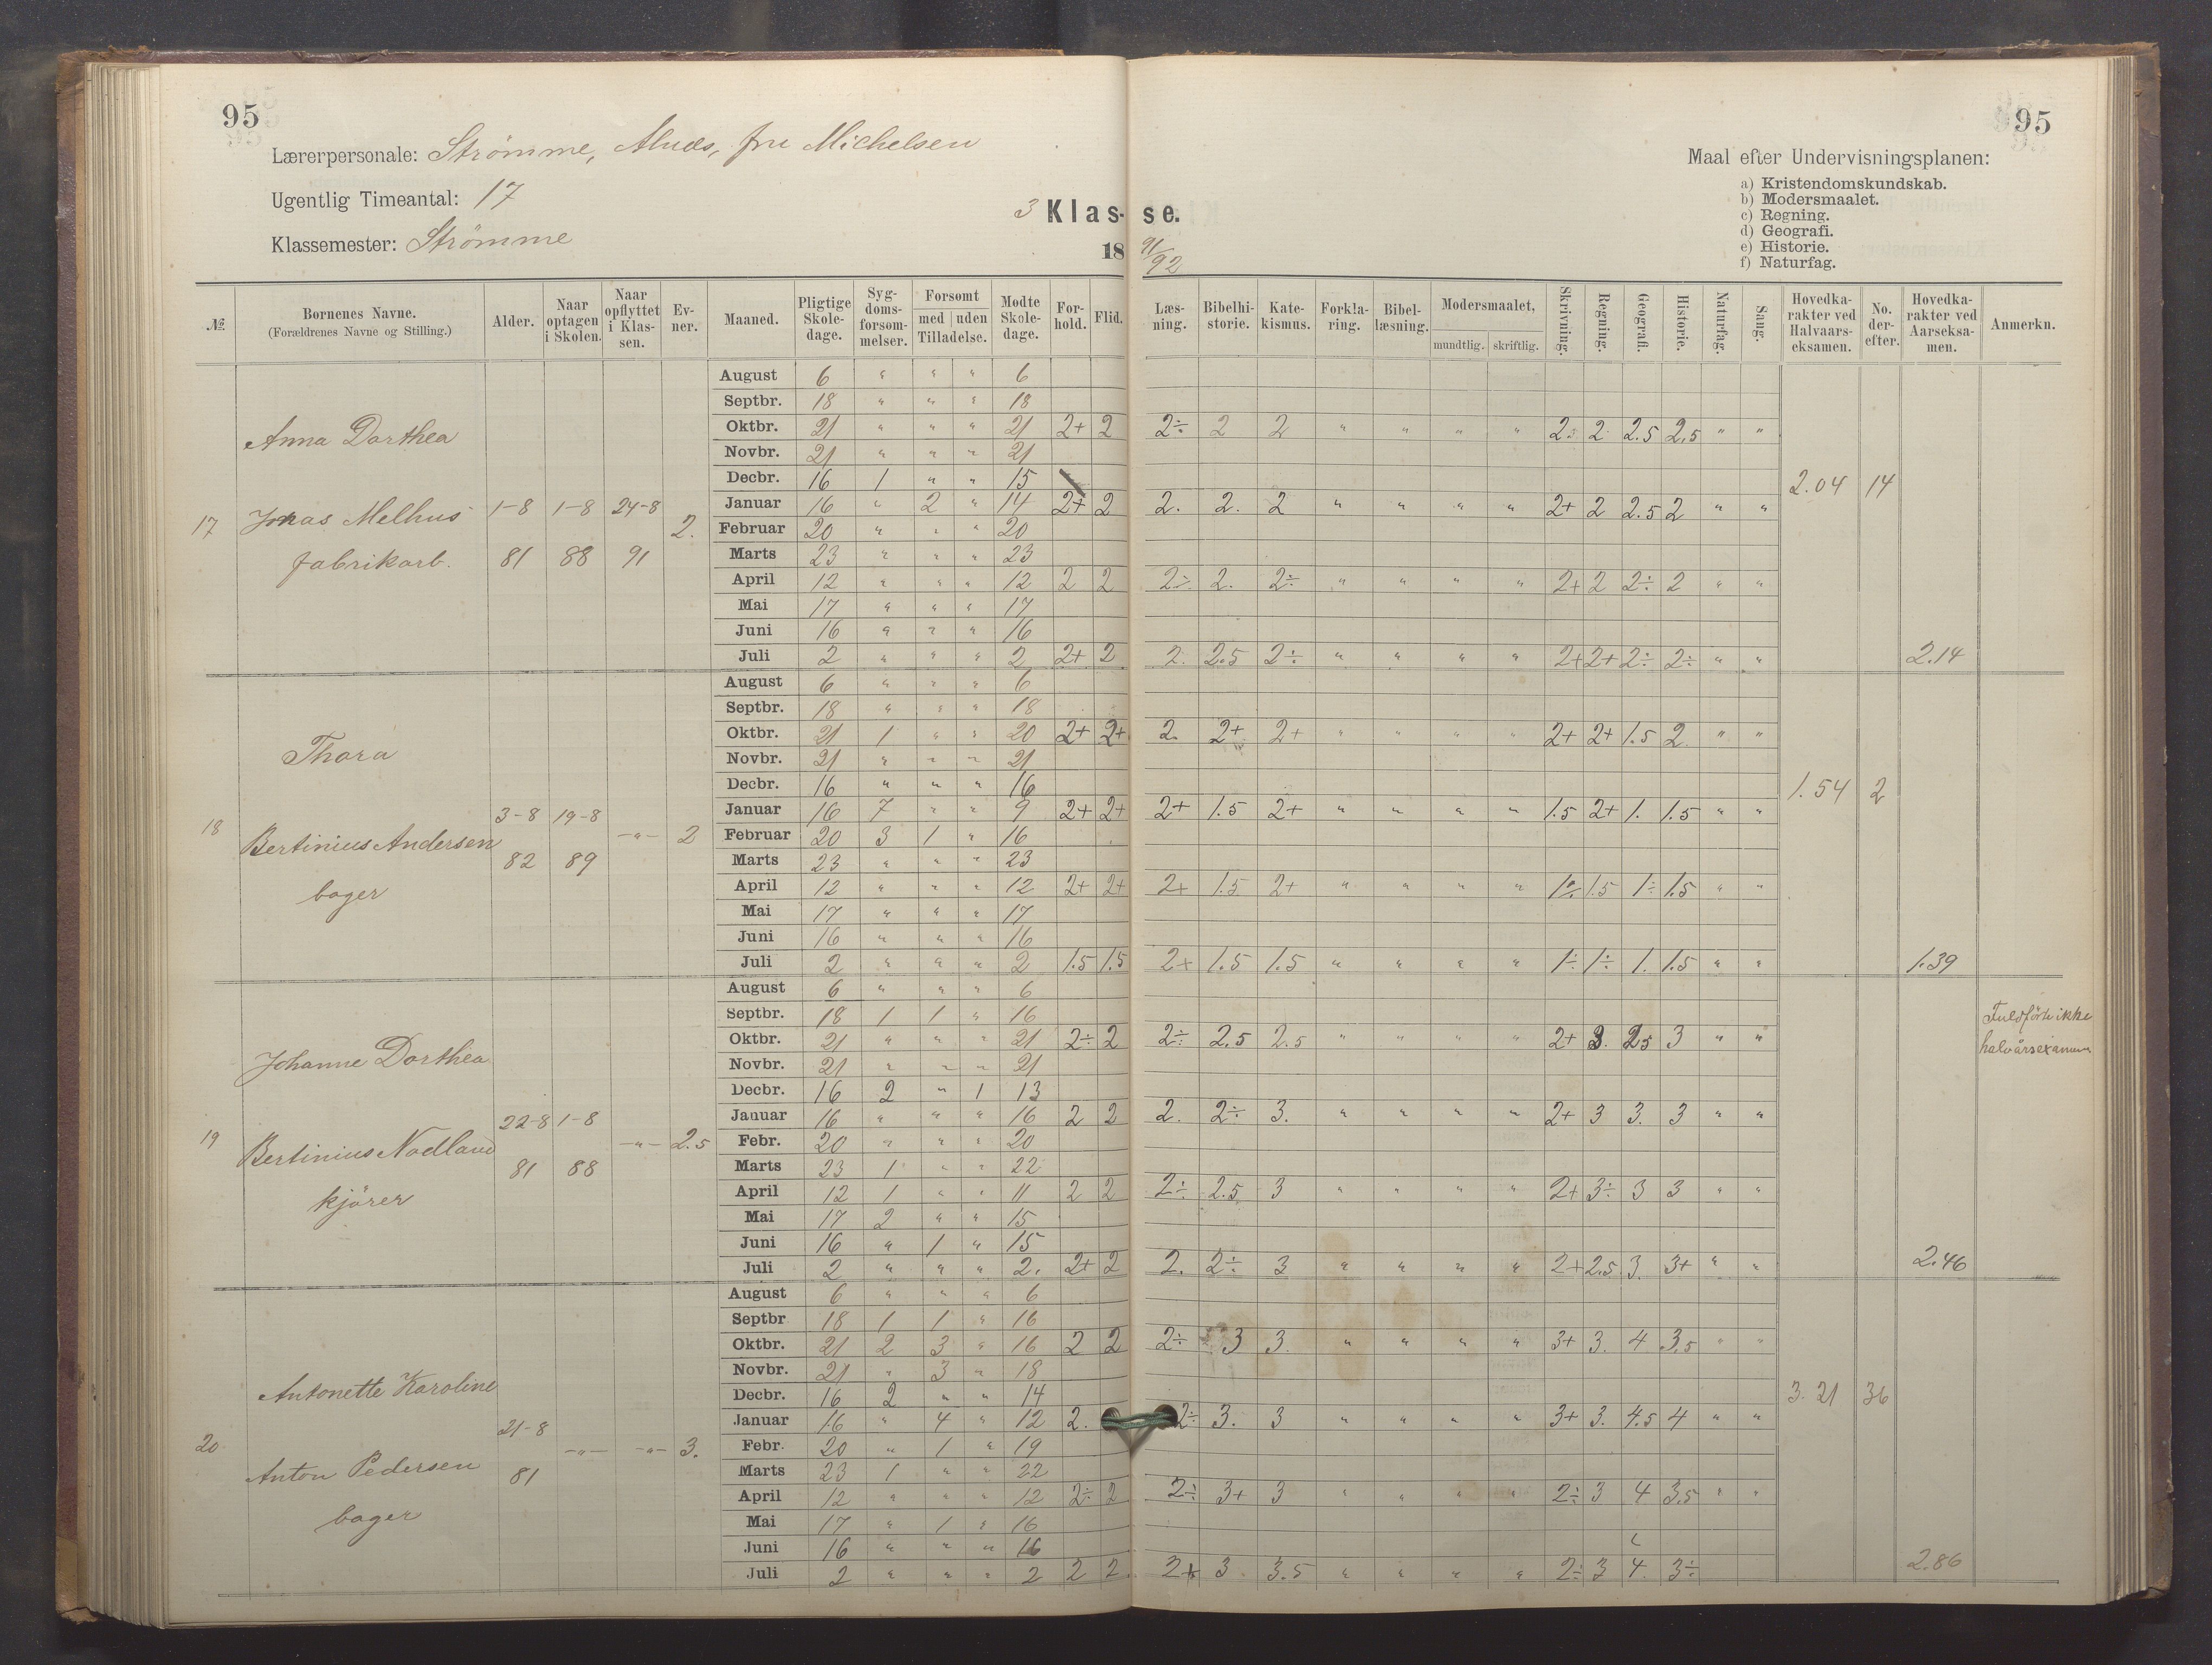 95
95
Lærerpersonale: Strömme, fru Michelsen
Ugentlig Timeantal: 17
Klassemester: Strömme
3 Klas- se.
18 91/92
Maal efter Undervisningsplanen:
a) Kristendomskundskab.
b) Modersmaalet.
c) Regning.
d) Geografi.
e) Historie.
f) Naturfag.
№ Bornenes Navne. (Forældrenes Navne og Stilling.) Alder. Naar optagen i Skolen. Naar opflyttet i Klas- sen. Ev- ner. Maaned. Pligtige Skole- dage. Syg- doms- forsom- melser. Forsomt med uden Tilladelse. Modte Skole- dage. For- hold. Flid. Læs- ning. Bibelhi- storie. Kate- kismus. Forkla- ring. Bibel- læsning. Modersmaalet, mundtlig. skriftlig. Skrivning. Regning. Geografi. Historie. Naturfag. Sang. Hovedka- rakter ved Halvaars- eksamen. No. der- efter. Hovedka- rakter ved Aarseksa- men. Anmerkn.
17 Anna Dorthea
Jonas Melhus
fabrikarb.
1-8 81 1-8 88 24-8 91 2.
August 6 " " " 6
Septbr. 18 " " " 18
Oktbr. 21 " " " 21 2+ 2 2÷ 2 2 " " " " 2. 2 2.5 2.5 " "
Novbr. 21 " " " 21
Decbr. 16 1 " " 15
2.04 14
Januar 16 " 2 " 14 2+ 2 2. 2. 2 " " " " 2+ 2 2.5 2 " "
Februar 20 " " " 20
Marts 23 " " " 23
April 12 " " " 12 2 2 2÷ 2. 2÷ " " " " 2+ 2 2÷ 2 " "
Mai 17 " " " 17
Juni 16 " " " 16
Juli 2 " " " 2 2+ 2 2. 2.5 2÷ " " " " 2+ 2+ 2÷ 2÷ " " 2.14
18 Thora
Bertinius Andersen
bager
3-8 82 19-8 89 -"- 2
August 6 " " " 6
Septbr. 18 " " " 18
Oktbr. 21 1 " " 20 2+ 2+ 2. 2+ 2+ " " " " 2+ 2+ 1.5 2 " "
Novbr. 21 " " " 21
Decbr. 16 " " " 16
1.54 2
Januar 16 7 " " 9 2+ 2+ 2+ 1.5 2+ " " " " 1.5 2+ 1. 1.5 " "
Februar 20 3 1 " 16
Marts 23 " " " 23
April 12 " " " 12 2+ 2+ 2+ 1.5 2+ " " " " 1÷ 1.5 1÷ 1.5 " "
Mai 17 " " " 17
Juni 16 " " " 16
Juli 2 " " " 2 1.5 1.5 2+ 1.5 1.5 " " " " 1÷ 1÷ 1. 1.5 " " 1.39
19 Johanne Dorthea
Bertinius Nodland
kjörer
22-8 81 1-8 88 -"- 2.5
August 6 " " " 6
Septbr. 18 1 1 " 16
Fuldförte ikke
halvårsexamen
Oktbr. 21 " " " 21 2÷ 2 2÷ 2.5 2.5 " " " " 2+ 3. 2.5 3 " "
Novbr. 21 " " " 21
Decbr. 16 2 " 1 13
Januar 16 " " " 16 2 2 2. 2÷ 3. " " " " 2+ 3 3. 3 " "
Febr. 20 " " " 20
Marts 23 1 " " 22
April 12 1 " " 11 2 2 2÷ 2.5 3 " " " " 2+ 3÷ 3 3 " "
Mai 17 2 " " 15
Juni 16 " 1 " 15
Juli 2 " " " 2. 2+ 2 2. 2÷ 3 " " " " 2+ 2.5 3. 3+ " " 2.46
20 Antonette Karoline
Anton Pedersen
bager
21-8 81 -"- -"- 3.
August 6 " " " 6
Septbr 18 1 1 " 16
Oktbr. 21 2 3 " 16 2 2 2÷ 3 3. " " " " 3+ 3. 4 3.5 " "
Novbr. 21 " 3 " 18
Decbr. 16 2 " " 14
3.21 36
Januar 16 " 4 " 12 2. 2÷ 3. 3 " " " " 3+ 3. 4.5 4 " "
Febr. 20 " 1 " 19
Marts 23 1 " " 22
April 12 " " " 12 2÷ 2 2÷ 3+ 3 " " " " 2÷ 3 4 3.5 " "
Mai 17 " 1 " 16
Juni 16 " " " 16
Juli 2 " " " 2 2 2 2+ 3. 3.5 " " " " 2÷ 3 4. 3÷ 2.86